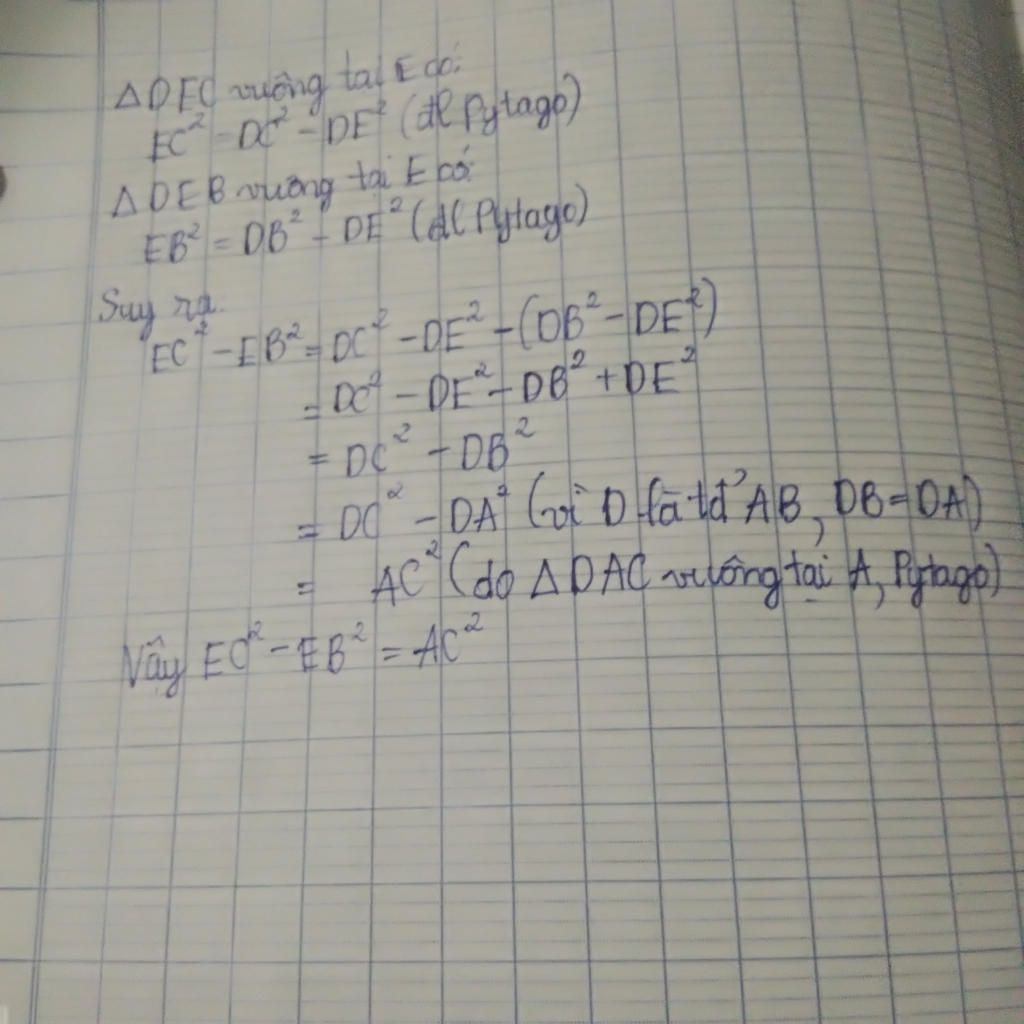 △DEC vuông tại E có:
EC² = DC² - DE² (đl Pytago)
△DEB vuông tại E có:
EB² = DB² - DE² (đl Pytago)
Suy ra:
EC² - EB² = DC² - DE² - (DB² - DE²)
= DC² - DE² - DB² + DE²
= DC² - DB²
= DC² - DA² (vì D là tđ AB, DB = DA)
= AC² (do △DAC vuông tại A, Pytago)
Vậy EC² - EB² = AC²